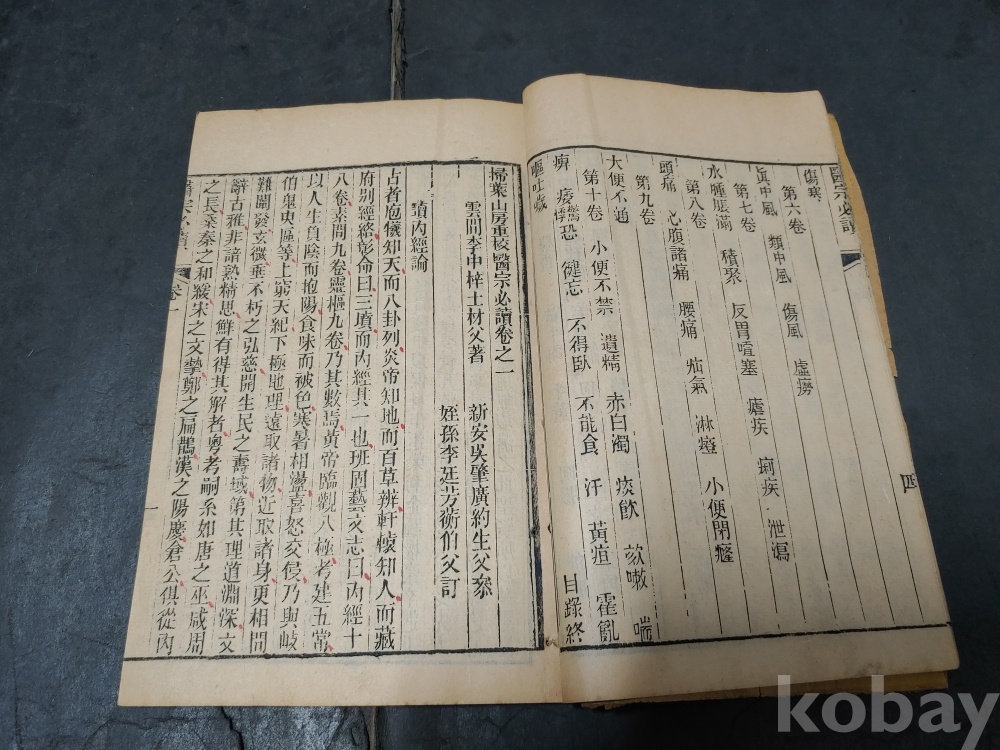 醫宗必讀
傷寒
第六卷
眞中風 類中風 傷風 虛癆
第七卷
水腫脹滿 積聚 反胃噎塞 瘧疾 痢疾 泄瀉
第八卷
頭痛 心腹諸痛 腰痛 疝氣 淋證 小便閉癃
第九卷
大便不通 小便不禁 遺精 赤白濁 痰飲 欬嗽 喘
第十卷
痹 痿 驚 悸 恐 健忘 不得臥 不能食 汗 黃疸 霍亂
嘔吐噦 目錄終
四
掃葉山房重校醫宗必讀卷之一
雲間李中梓士材父著 新安吳肇廣約生父叅
姪孫李廷芳蘅伯父訂
讀內經論
古者庖犧知天而八卦列炎帝知地而百草辨軒轅知人而藏
府別經絡彰命曰三墳而內經其一也班固藝文志曰內經十
八卷素問九卷靈樞九卷乃其數焉黃帝臨觀八極考建五常
以人生負陰而抱陽食味而被色寒暑相盪喜怒交侵乃與岐
伯鬼臾區等上窮天紀下極地理遠取諸物近取諸身更相問
難闡發玄微垂不朽之弘慈開生民之壽域第其理道淵深文
辭古雅非諳熟精思鮮有得其解者粵考嗣系如唐之巫咸周
之長桑秦之和緩宋之文摯鄭之扁鵲漢之陽慶倉公俱從內
醫宗必讀 卷一 一
kobay